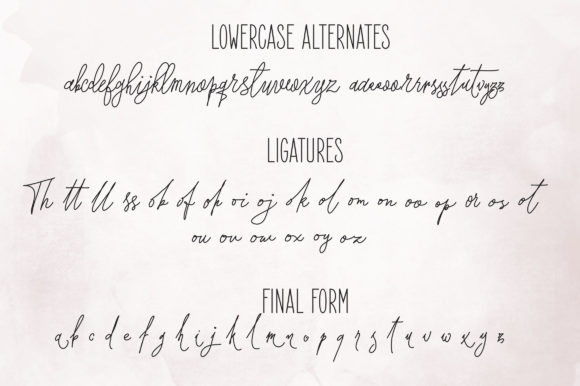 LOWERCASE ALTERNATES
abcdefghijklmnopqrstuvwxyz adeeoorrrssstutwyzz
LIGATURES
Th tt ll ss ob of ok oi oj ok ol om on oo op or os ot
ou ov ow ox oy oz
FINAL FORM
a b c d e f g h i j k l m n o p q r s t u v w x y z